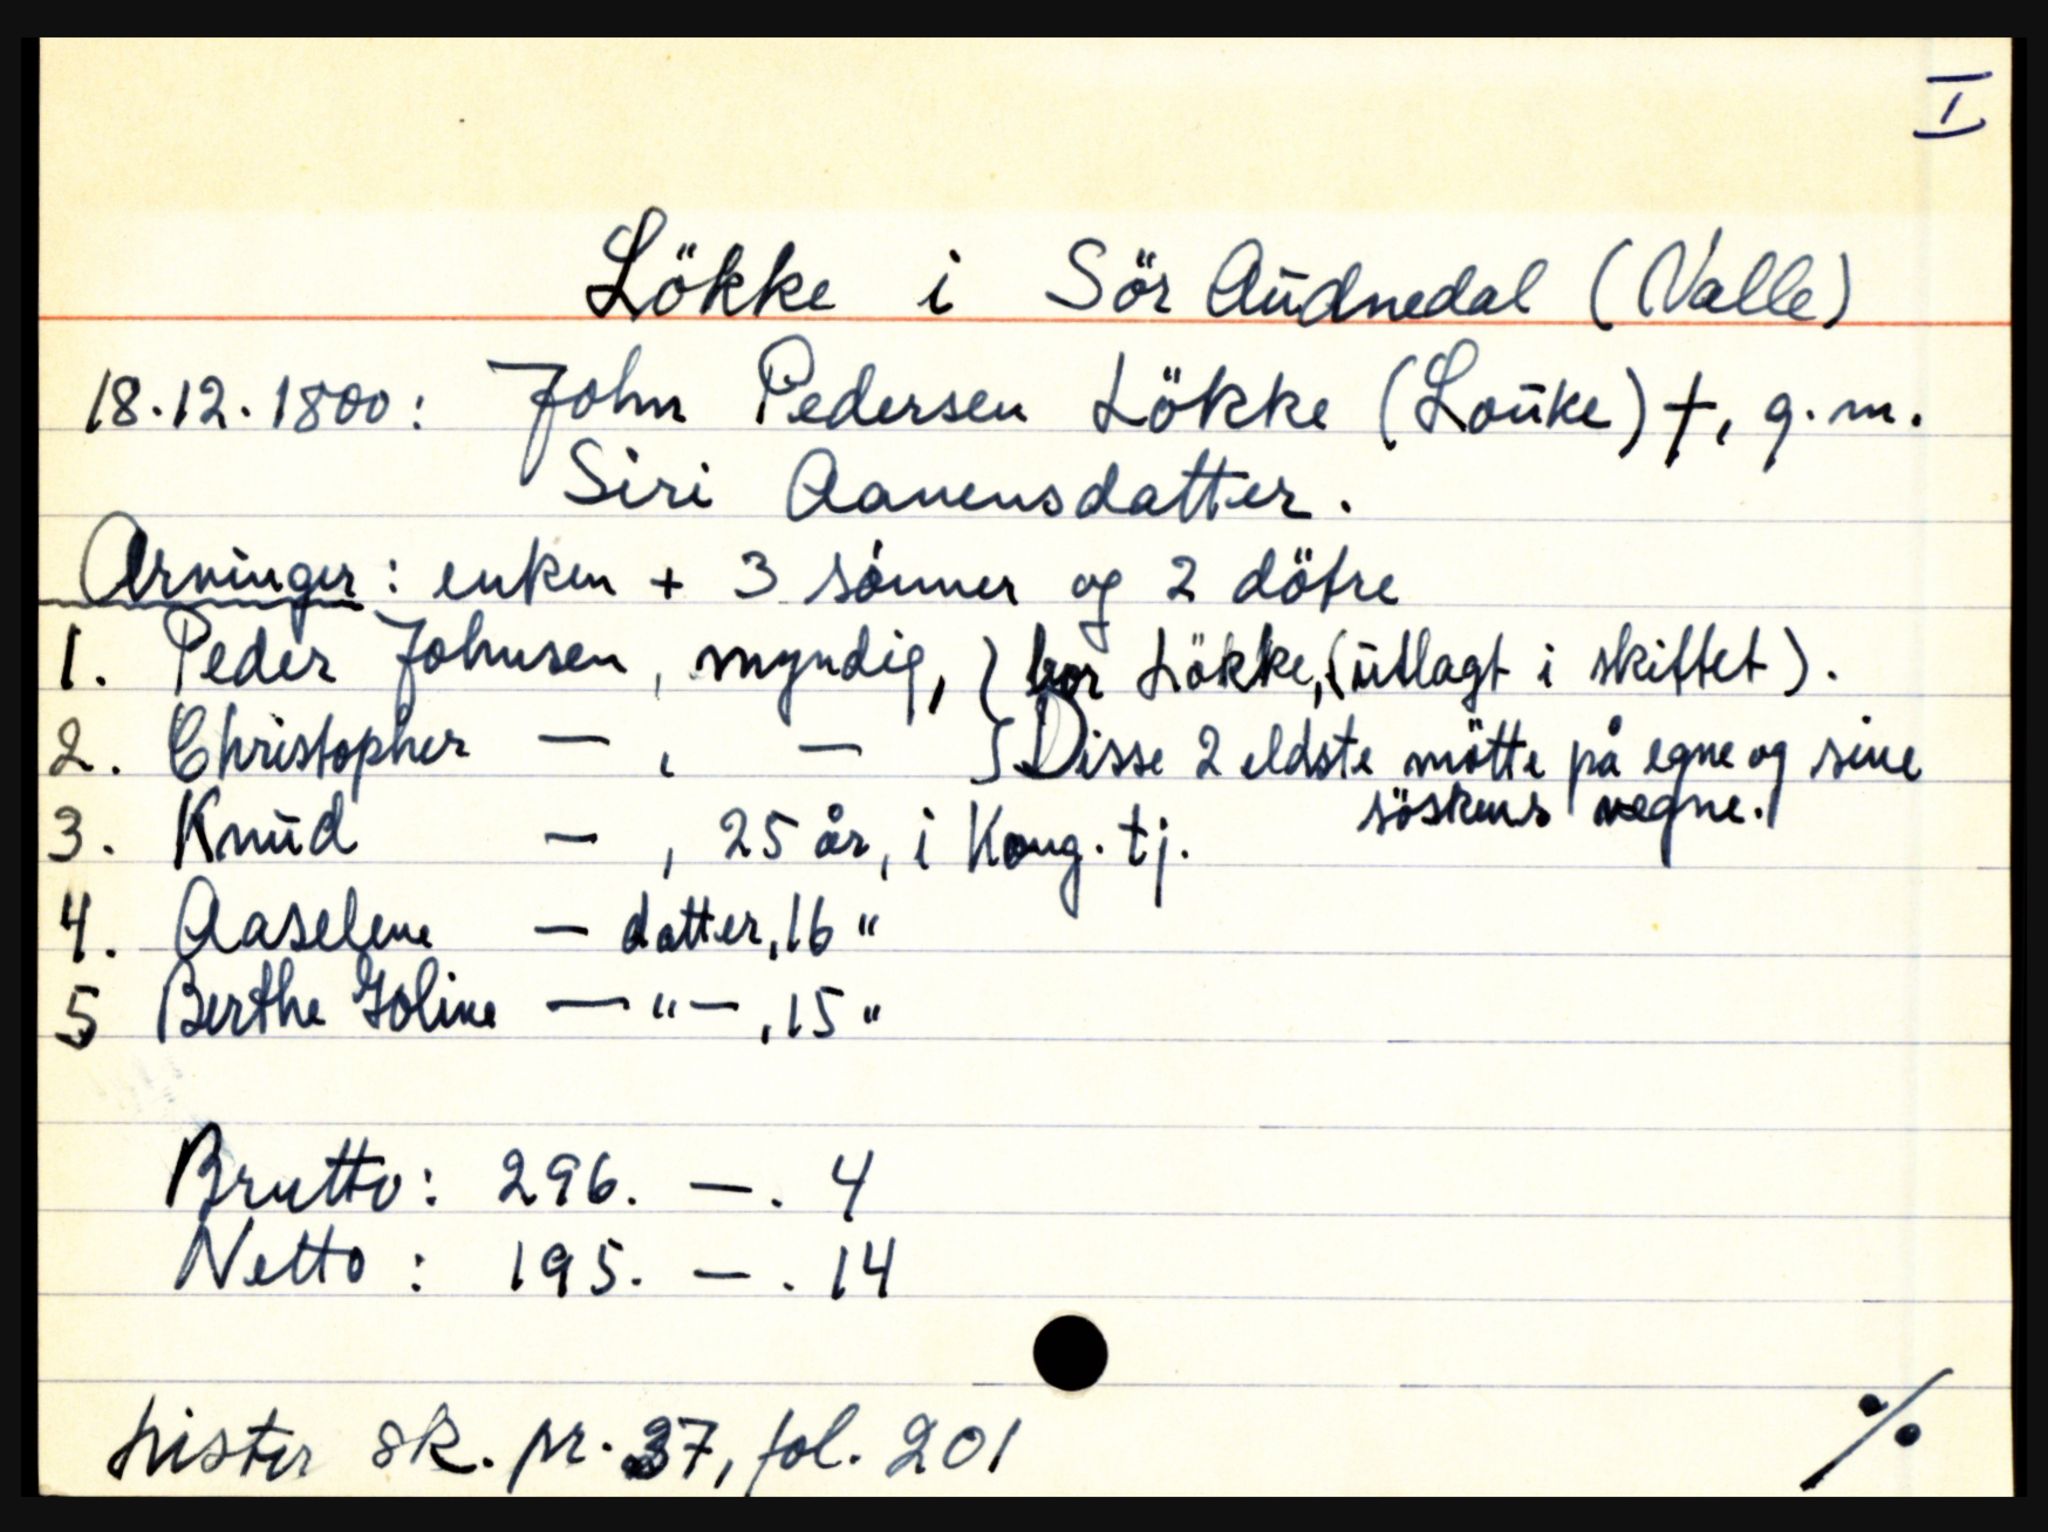 I
Lökke i Sör Aūdnedal (Valle)
18.12.1800: John Pedersen Lökke (Loūke) †, g.m.
Siri Aanensdatter.
Arvinger: enken + 3 sønner og 2 dötre
1. Peder Johnsen, myndig, } bor Lökke, (ūtlagt i skiftet).
2. Christopher — , — } Disse 2 eldste mötte på egne og sine
söskens vegne.
3. Knūd — , 25 år, i Kong. tj.
4. Aaselene — datter, 16 "
5 Berthe Goline — " — , 15 "
Brutto: 296. —. 4
Netto: 195. —. 14
Lister sk. pr. 37, fol. 201
%